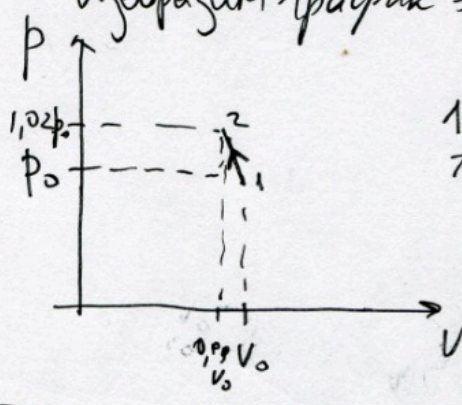 Изобразим график
p
1,02p₀
2
1
p₀
1
0,99 V₀
V₀
V